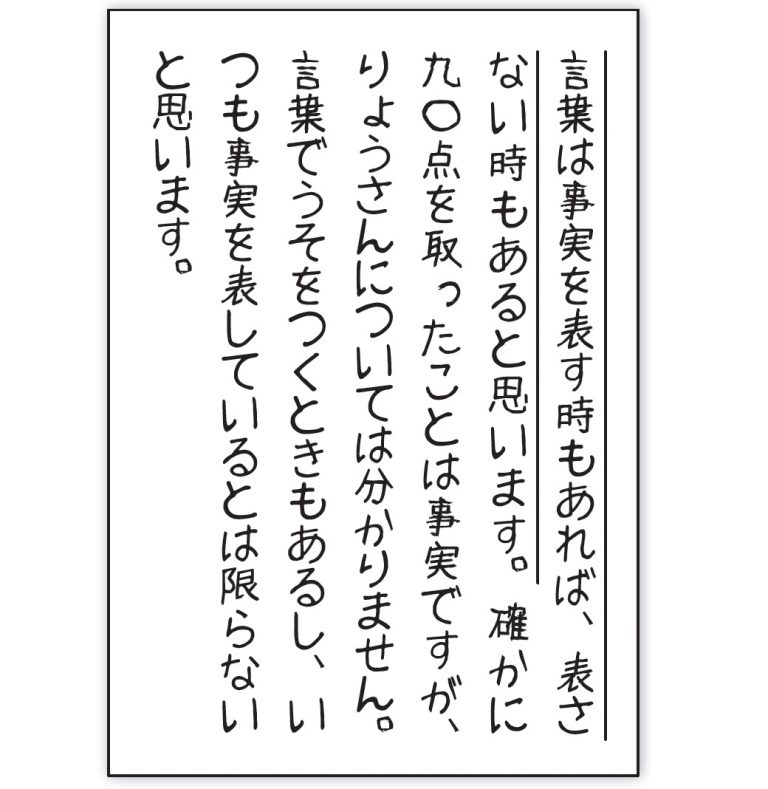 言葉は事実を表す時もあれば、表さ
ない時もあると思います。確かに
九〇点を取ったことは事実ですが、
りょうさんについては分かりません。
言葉でうそをつくときもあるし、い
つも事実を表しているとは限らない
と思います。